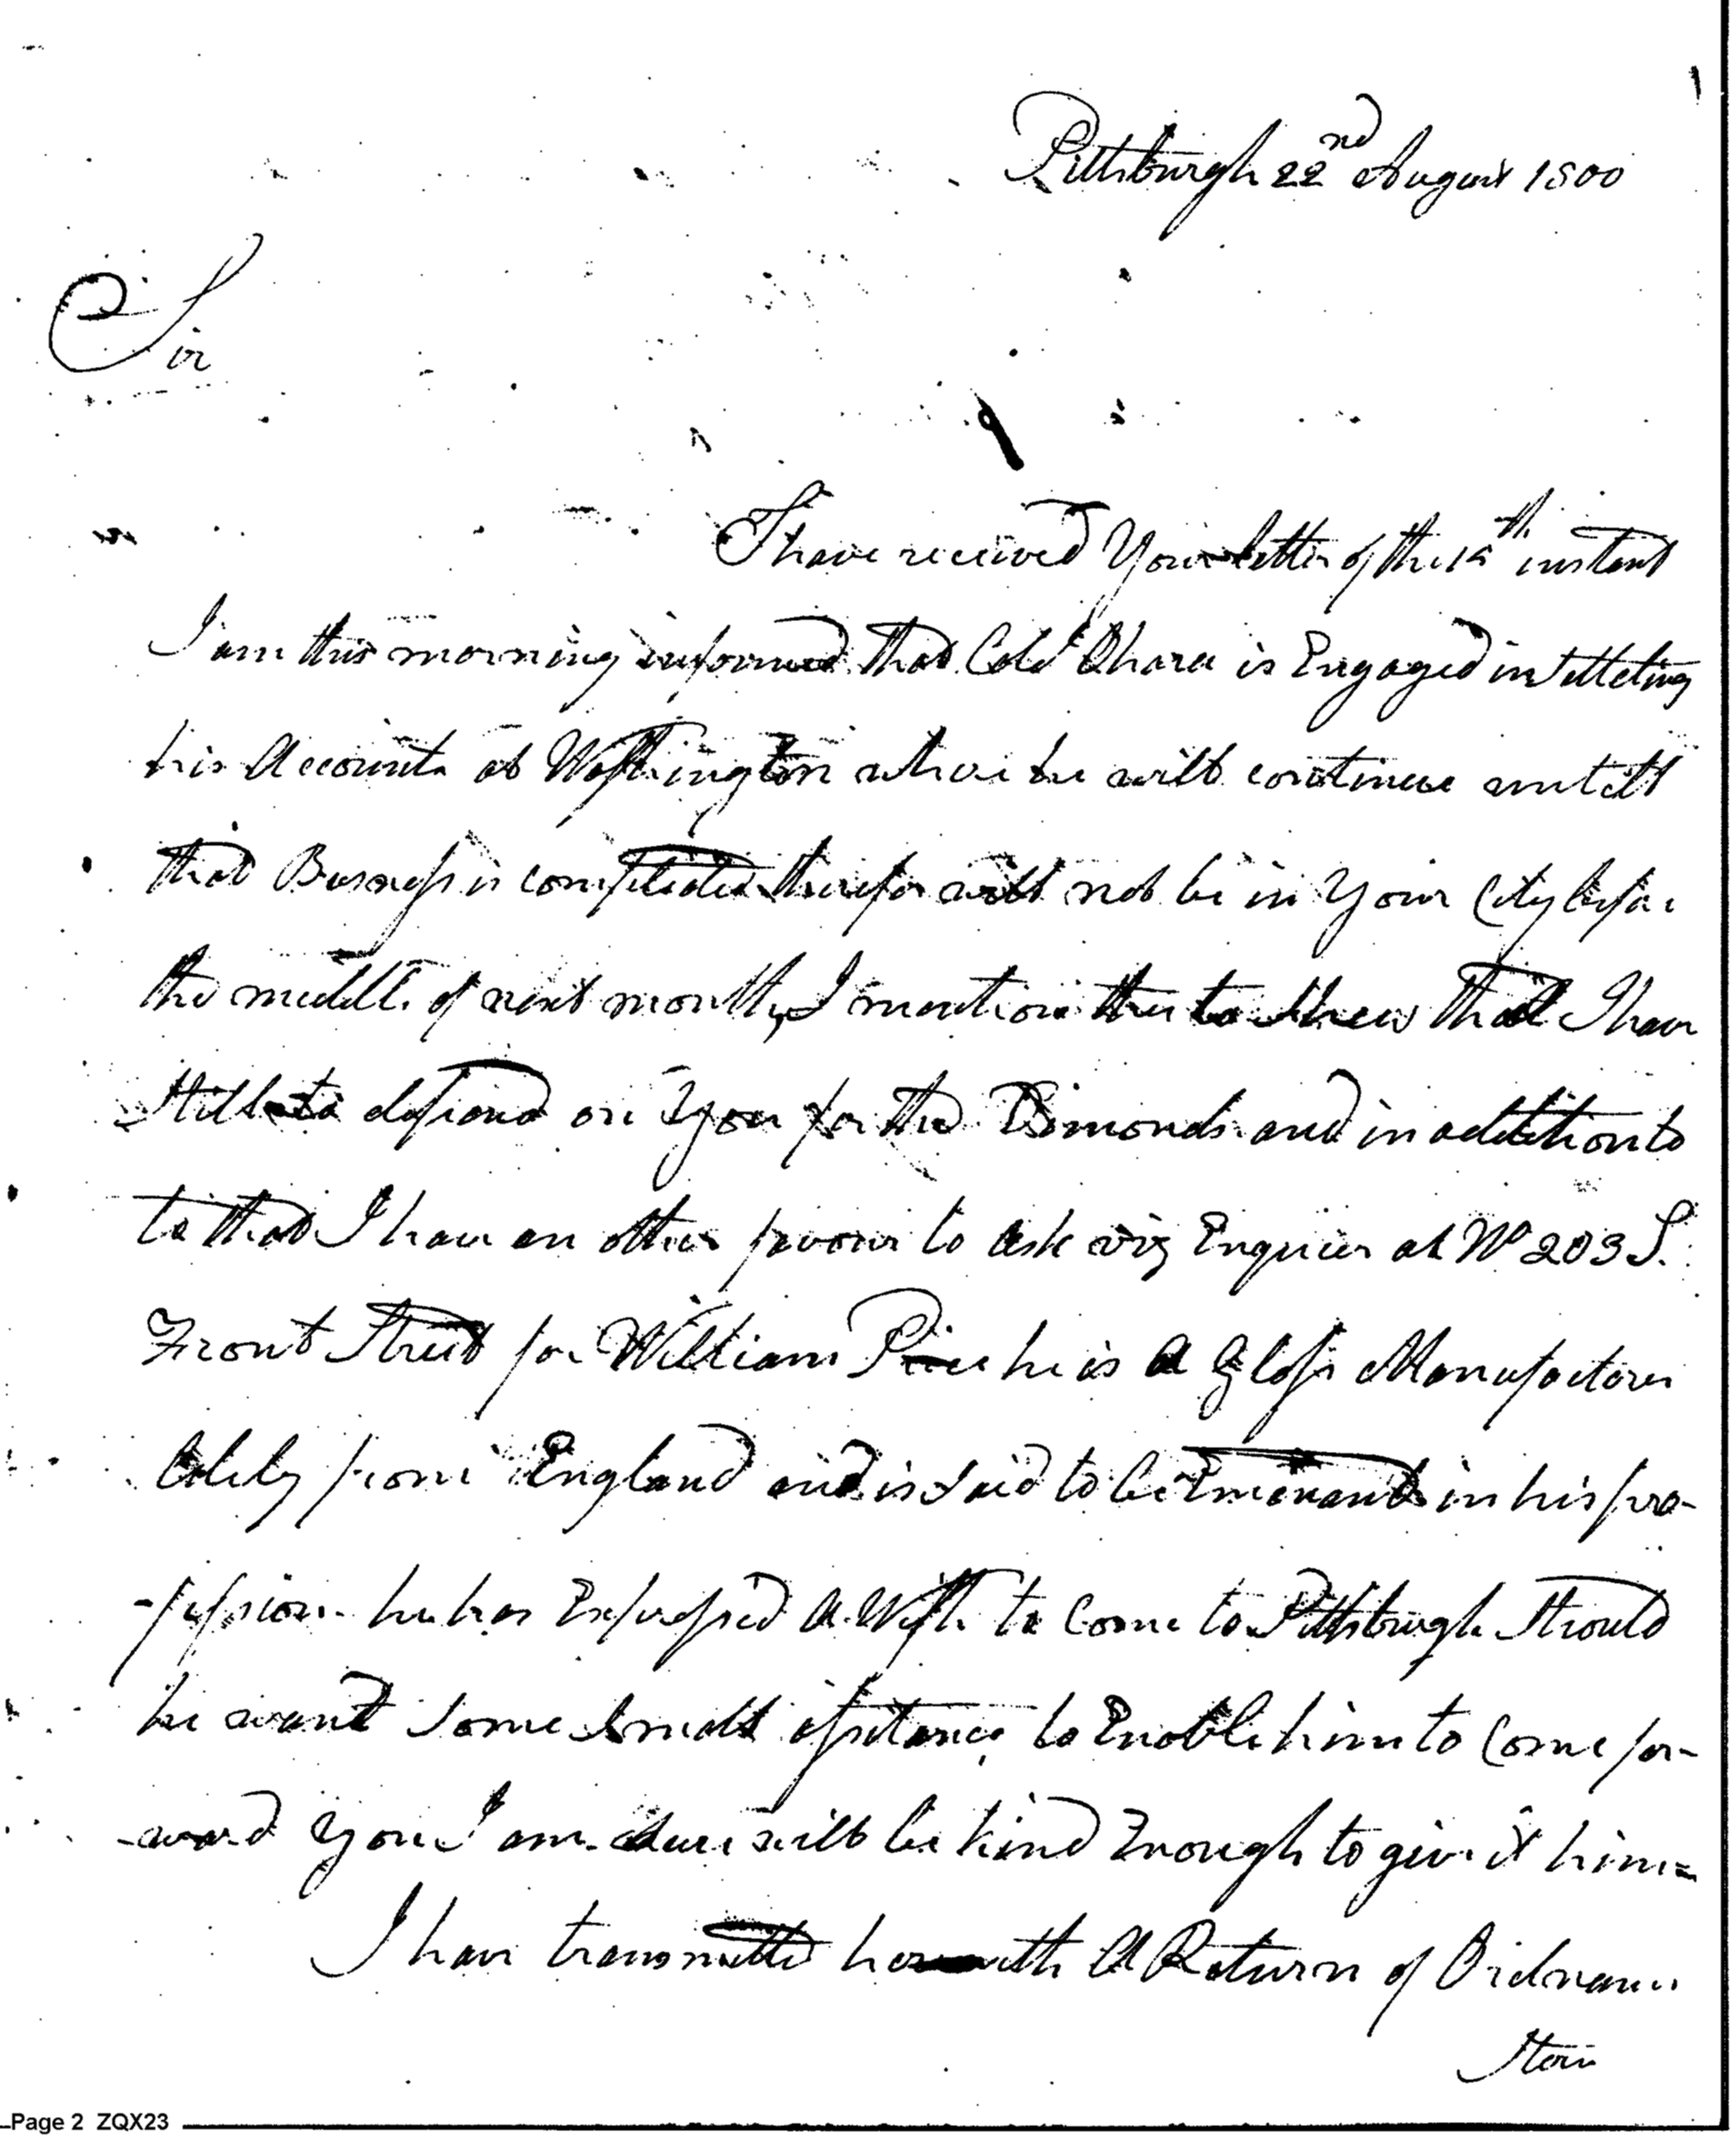 Pittsburgh 22nd August 1800
Sir
I have received Your letter of the 15th instant
I am this morning informed that Colo Ohara is Engaged in Settleting
his Accounts at Washington where he will continue untill
that Business is completed therefor will not be in Your City before
the middle of next month, I mention this to Shew that I have
Still to depend on You for the Dimonds and in addition to
to that I have an other favour to ask viz Enquier at No 203 S.
Front Street for William Price he is A Glass Manufactorer
lately from England and is Said to be Eminant in his pro-
-fession he has Expressed A Wish to Come to Pittsburgh Should
he want Some Small assistance to Enable him to Come for-
-ward You I am Sure will be kind Enough to give it him=
I have transmitted herewith A Return of Ordnance
Stores
Page 2 ZQX23